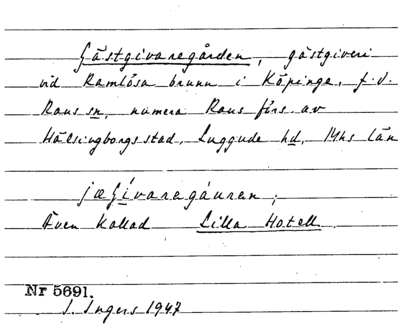 Gästgivaregården, gästgiveri
vid Ramlösa brunn i Köpinge, f.d.
Raus sn, numera Raus förs. av
Hälsingborgs stad, Luggude hd, Mhs län
jæʃívaragáuran;
Även kallad Lilla Hotell.
Nr 5691.
I. Ingers 1947